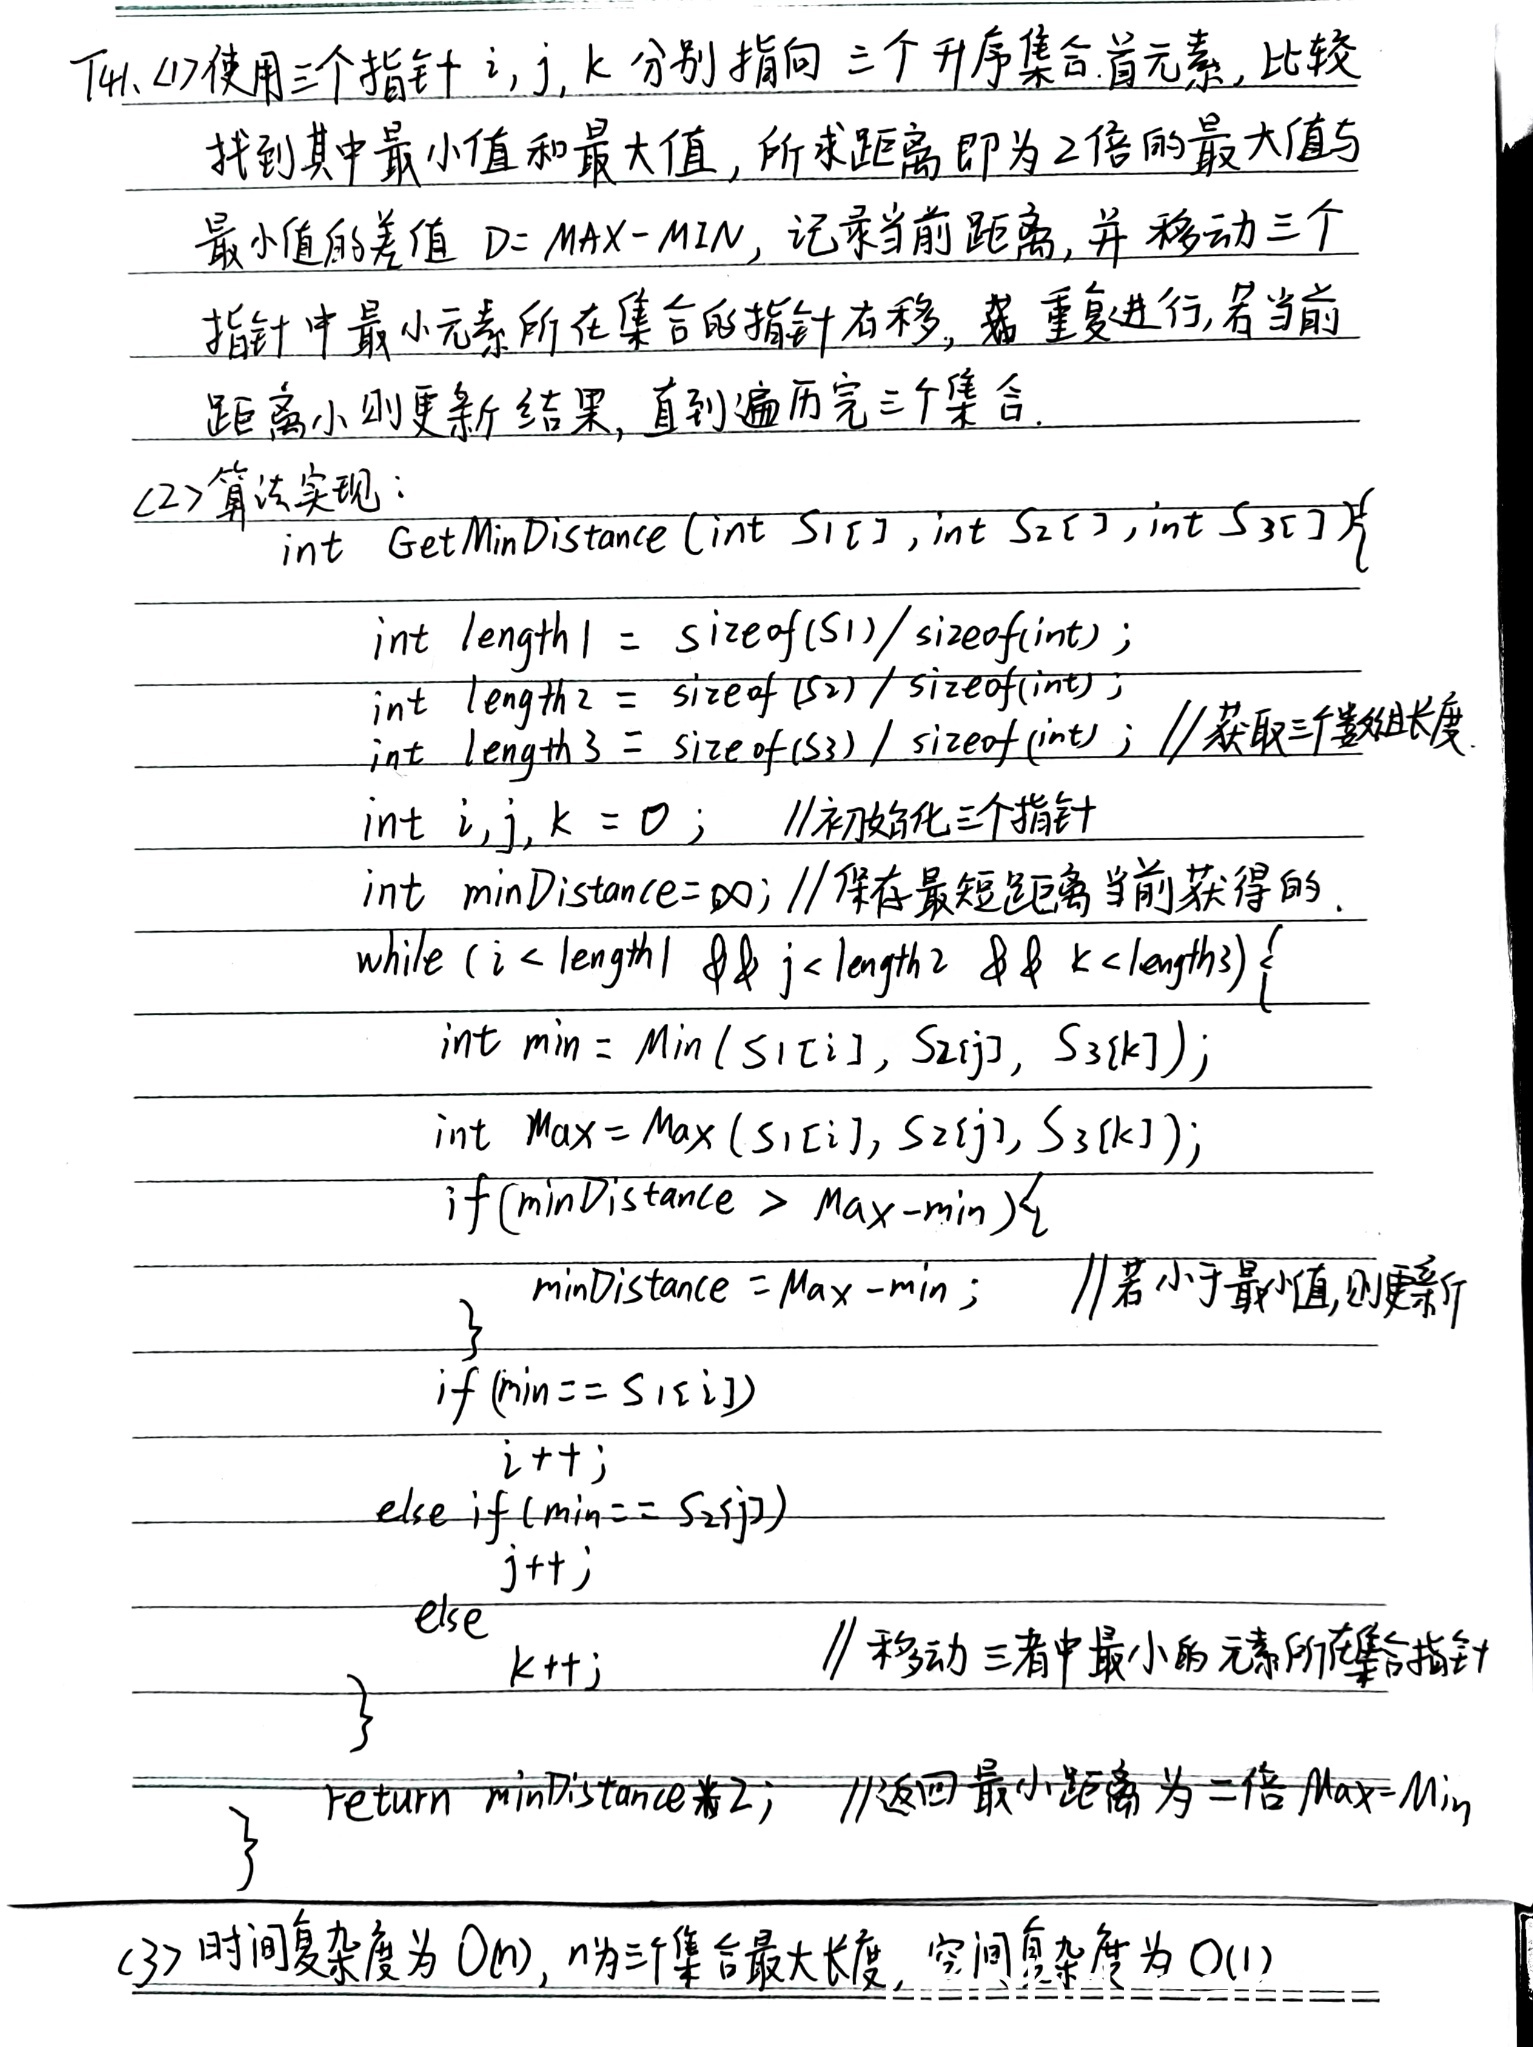 T41、<1>使用三个指针 i, j, k 分别指向 三个升序集合首元素, 比较
找到其中最小值和最大值, 所求距离即为2倍的最大值与
最小值的差值 D=MAX-MIN, 记录当前距离, 并移动三个
指针中最小元素所在集合的指针右移, 重复进行,若当前
距离小则更新结果, 直到遍历完三个集合.
<2>算法实现:
int GetMinDistance(int S1[], int S2[], int S3[]){
int length1 = sizeof(S1)/sizeof(int);
int length2 = sizeof(S2)/sizeof(int);
int length3 = sizeof(S3)/sizeof(int); //获取三个数组长度.
int i, j, k = 0; //初始化三个指针
int minDistance=∞; //保存最短距离当前获得的.
while(i<length1 && j<length2 && k<length3){
int min = Min(S1[i], S2[j], S3[k]);
int Max = Max(S1[i], S2[j], S3[k]);
if(minDistance > Max-min){
minDistance = Max-min; //若小于最小值,则更新
}
if(min==S1[i])
i++;
else if(min==S2[j])
j++;
else
k++; //移动三者中最小的元素所在集合指针
}
return minDistance*2; //返回最小距离为二倍Max-Min
}
<3>时间复杂度为O(n), n为三个集合最大长度, 空间复杂度为O(1)